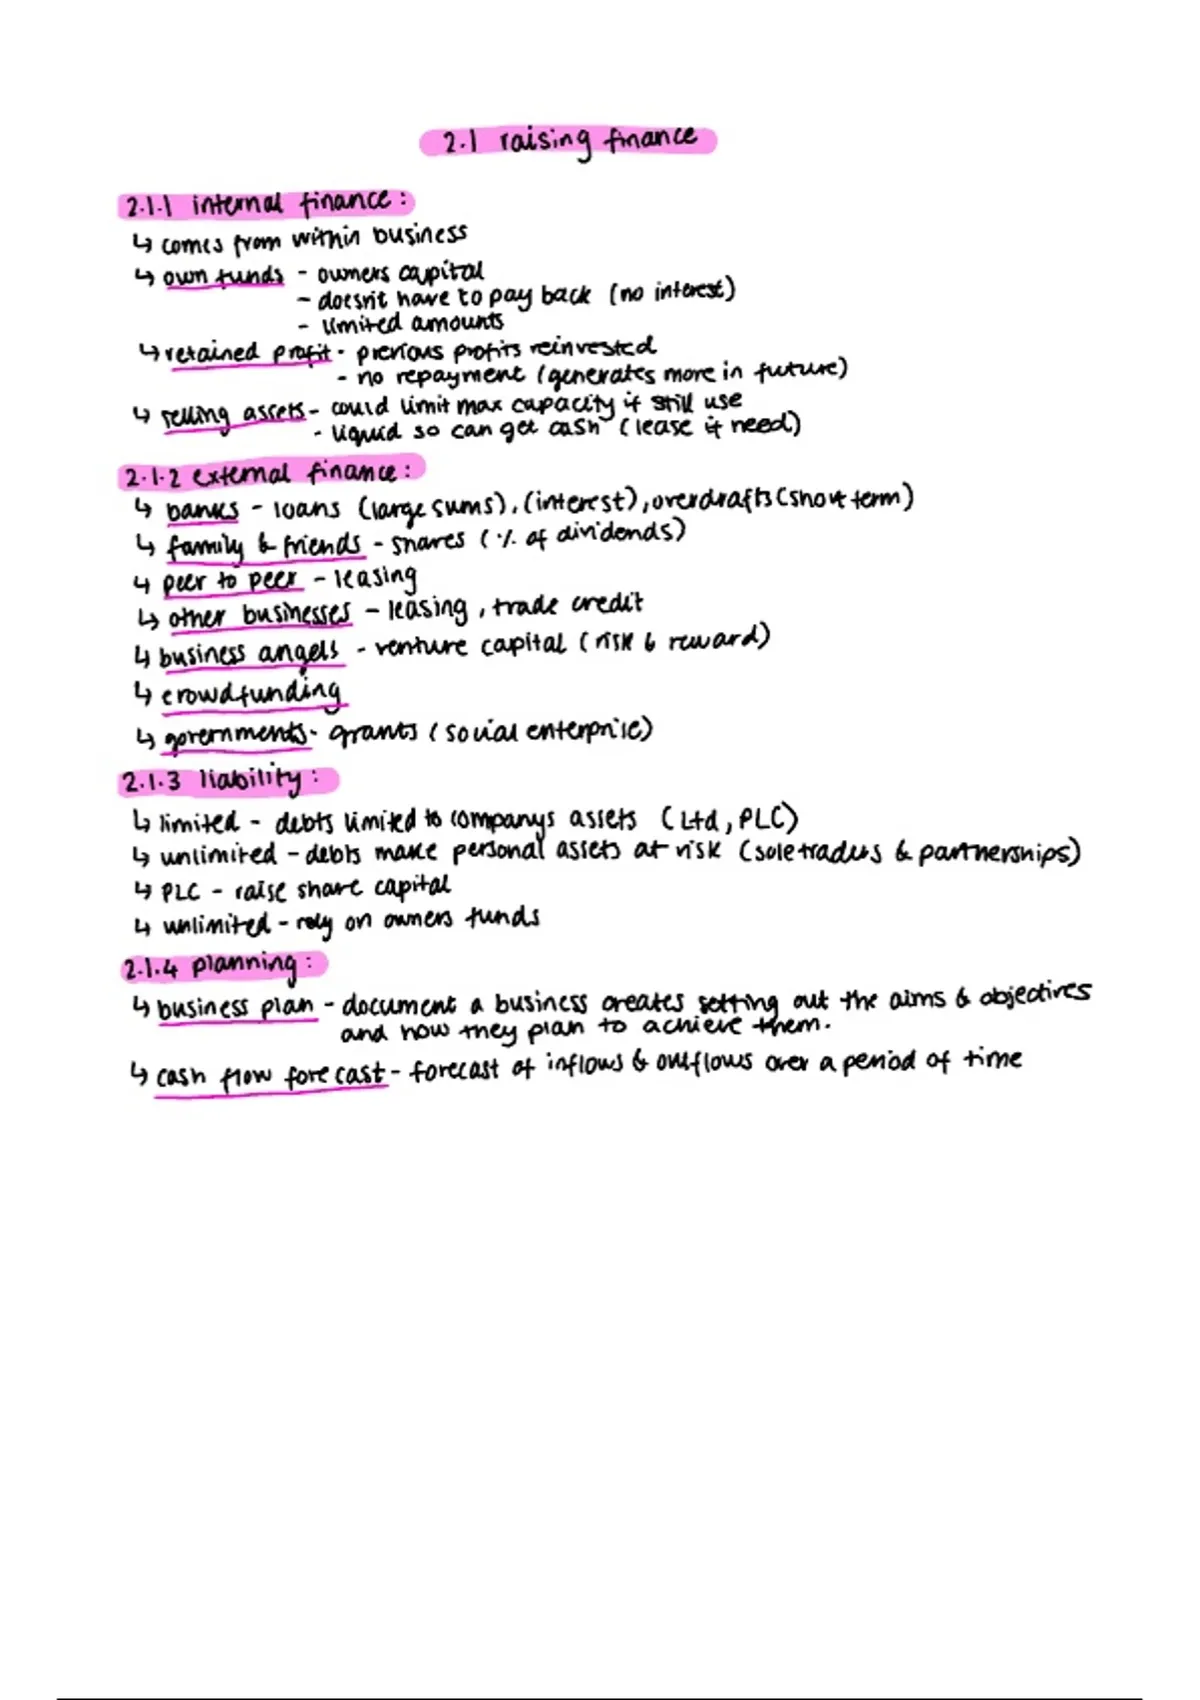 2.1 raising finance
2.1.1 internal finance:
↳ comes from within business
↳ own funds - owners capital
- doesn't have to pay back (no interest)
- limited amounts
↳ retained profit - previous profits reinvested
- no repayment (generates more in future)
↳ selling assets - could limit max capacity if still use
- liquid so can get cash (lease if need)
2.1.2 external finance:
↳ banks - loans (large sums), (interest), overdrafts (short term)
↳ family & friends - shares (% of dividends)
↳ peer to peer - leasing
↳ other businesses - leasing, trade credit
↳ business angels - venture capital (risk & reward)
↳ crowdfunding
↳ governments - grants (social enterprise)
2.1.3 liability:
↳ limited - debts limited to companys assets (Ltd, PLC)
↳ unlimited - debts make personal assets at risk (sole traders & partnerships)
↳ PLC - raise share capital
↳ unlimited - rely on owners funds
2.1.4 planning:
↳ business plan - document a business creates setting out the aims & objectives
and how they plan to achieve them.
↳ cash flow forecast - forecast of inflows & outflows over a period of time